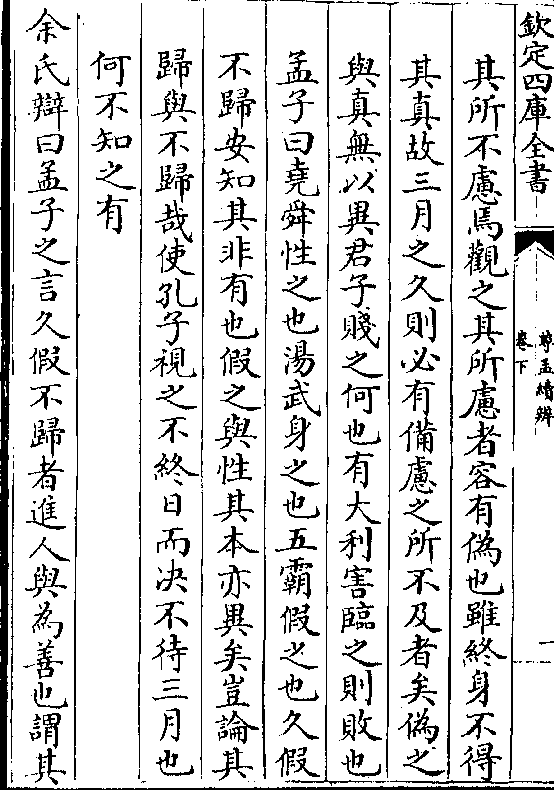 欽定四庫全書
尊孟續辨
卷下
一
其所不慮焉觀之其所慮者容有偽也雖終身不得
其真故三月之久則必有備慮之所不及者矣偽之
與真無以異君子賤之何也有大利害臨之則敗也
孟子曰堯舜性之也湯武身之也五霸假之也久假
不歸安知其非有也假之與性其本亦異矣豈論其
歸與不歸哉使孔子視之不終日而决不待三月也
何不知之有
余氏辯曰孟子之言久假不歸者進人與為善也謂其